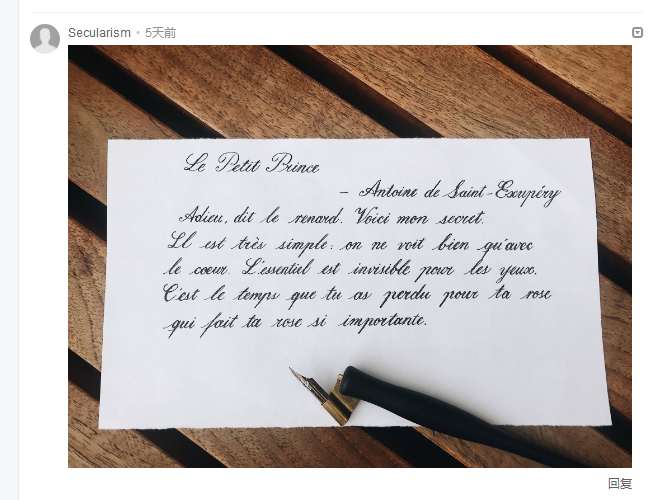 Secularism • 5天前
Le Petit Prince
– Antoine de Saint-Exupéry
Adieu, dit le renard. Voici mon secret.
Il est très simple: on ne voit bien qu'avec
le coeur. L'essentiel est invisible pour les yeux.
C'est le temps que tu as perdu pour ta rose
qui fait ta rose si importante.
回复